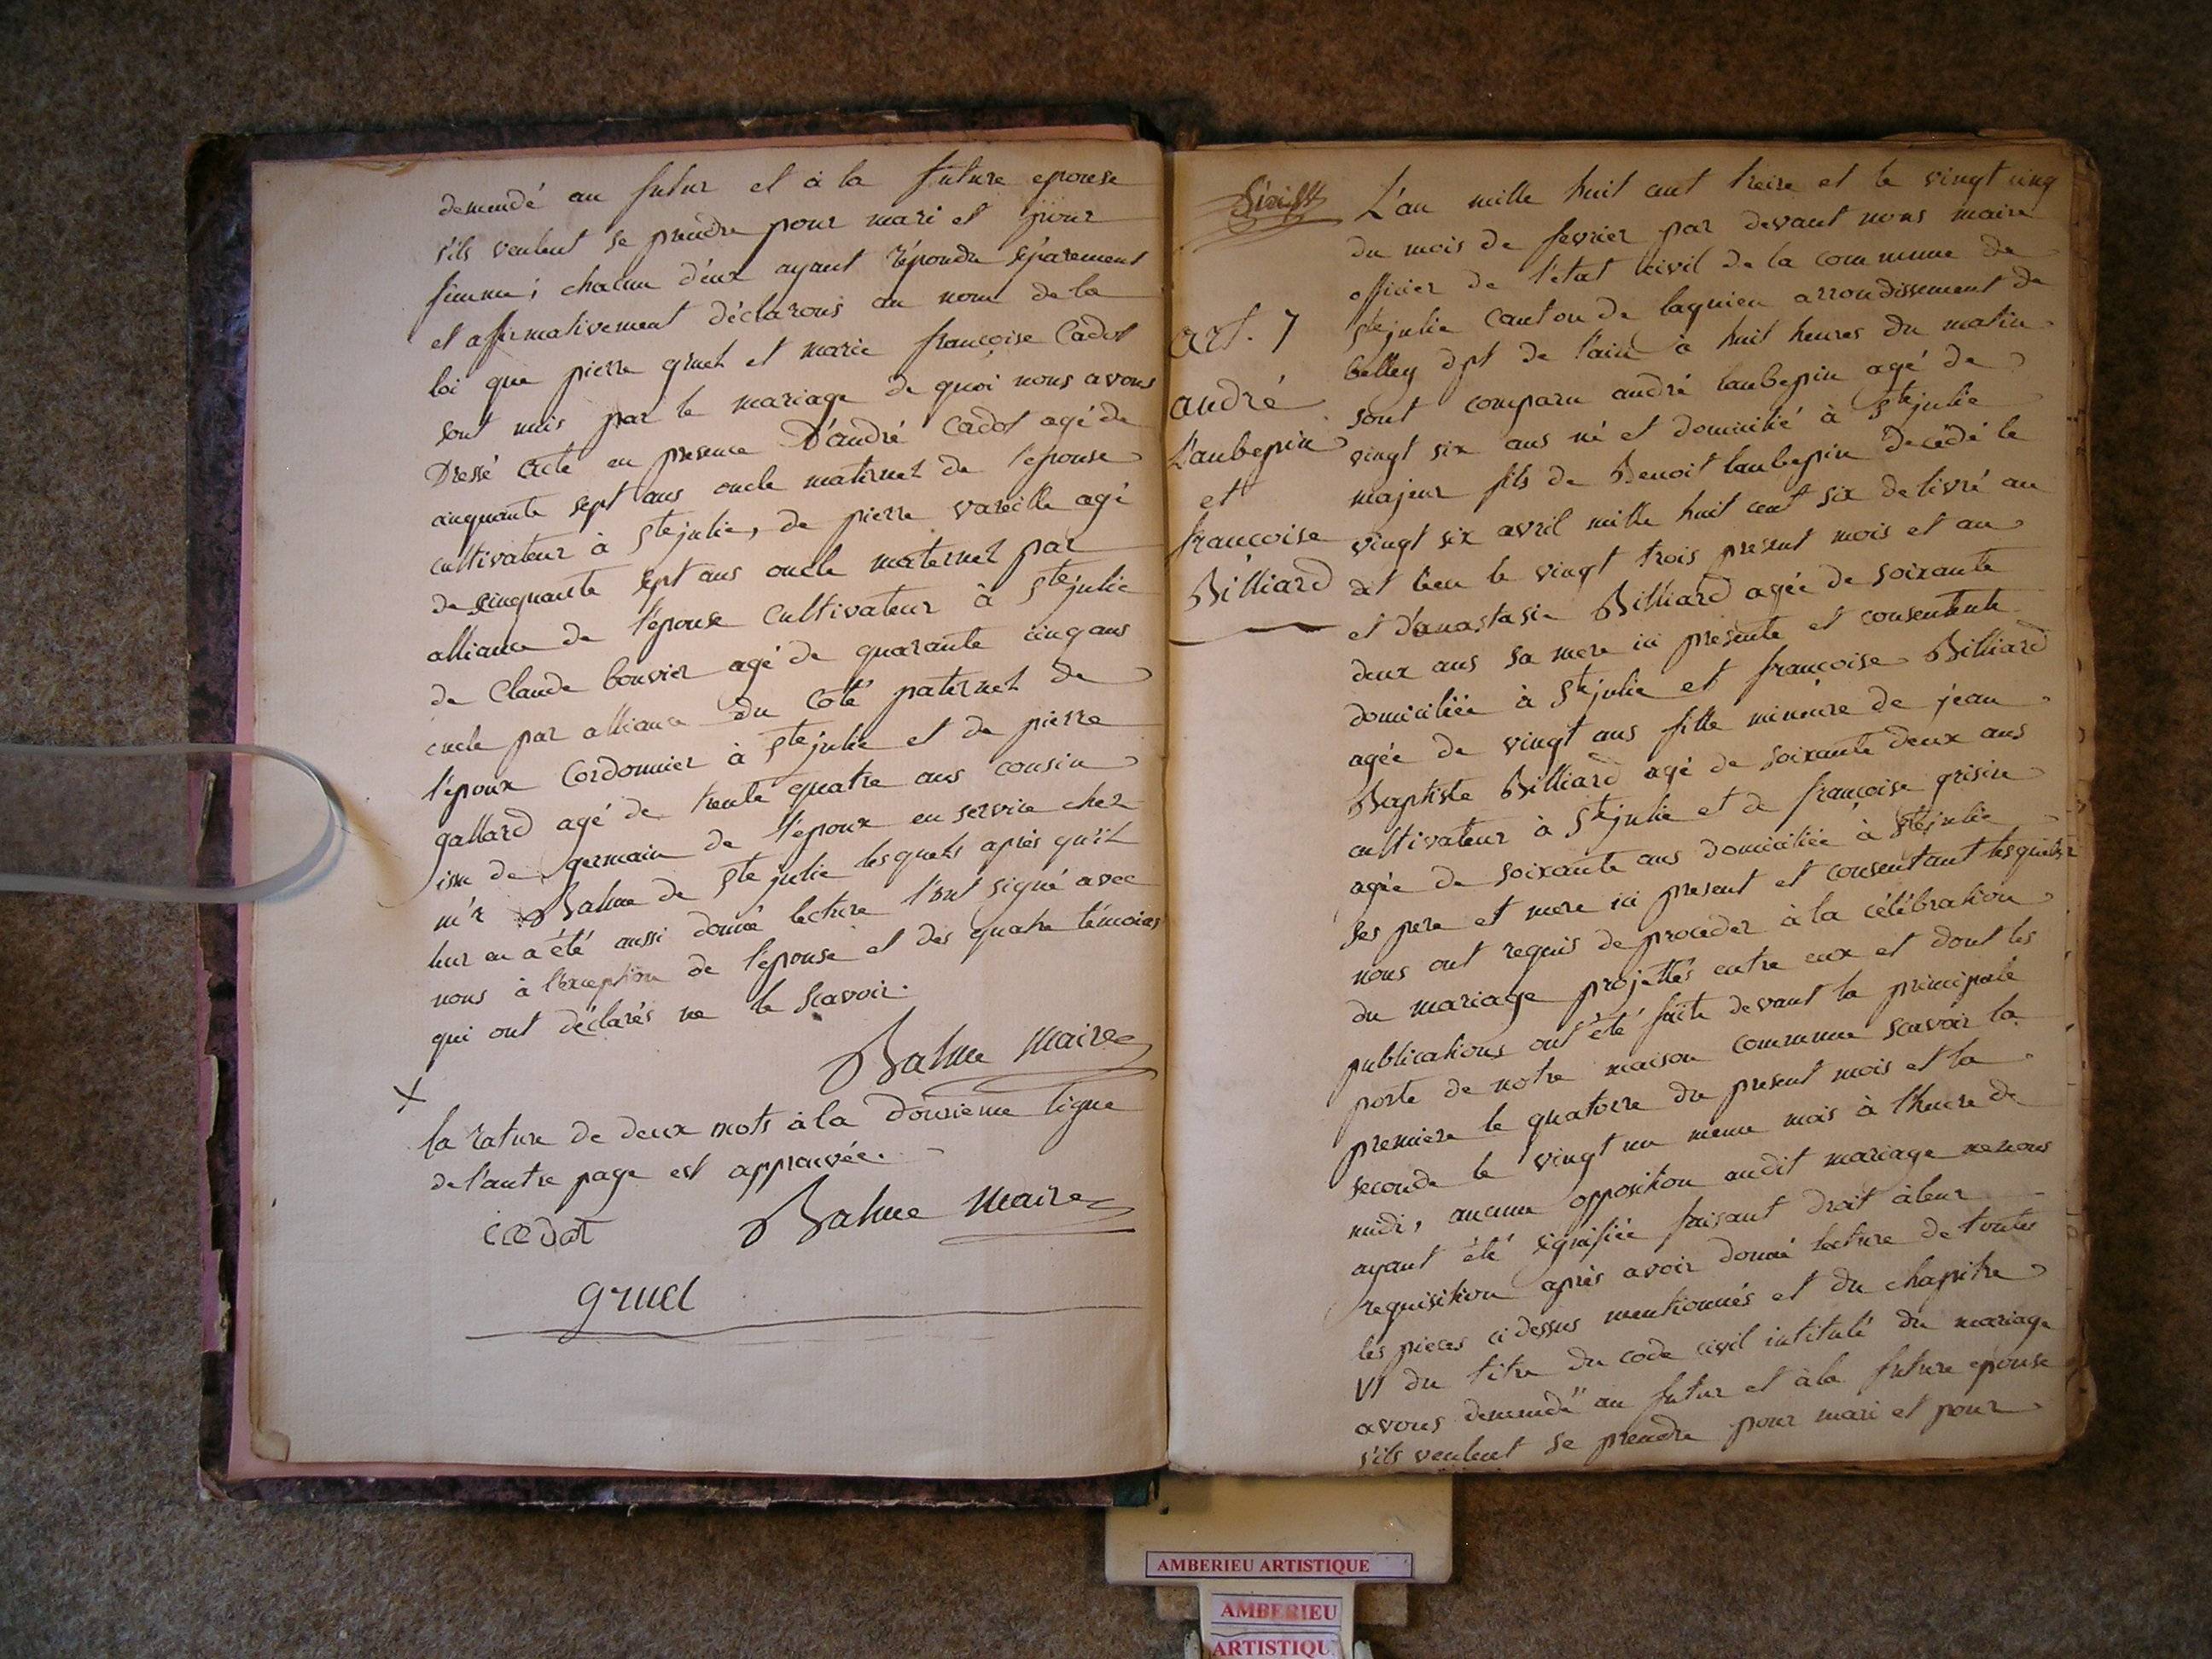 demandé au futur et à la future epouse
s'ils veulent se prendre pour mari et pour
femme; chacun d'eux ayant répondu séparement
et afirmativement déclarons au nom de la
loi que pierre gruel et marie françoise Cadot
sont unis par le mariage de quoi nous avons
Dressé acte en presence D'andré Cadot agé de
cinquante sept ans oncle maternel de l'epouse
cultivateur à Ste julie, de pierre vareille agé
de cinquante sept ans oncle maternel par
alliance de l'épouse cultivateur à Ste julie
de Claude bouvier agé de quarante cinq ans
oncle par alliance du coté paternel de
l'époux Cordonnier à Ste julie et de pierre
gallard agé de trente quatre ans cousin
issu de germain de l'epoux en service chez
m'r Balme de Ste julie lesquels après qu'il
leur en a été aussi donné lecture l'ont signé avec
nous à l'exception de l'épouse et des quatre témoins
qui ont déclarés ne le scavoir.
Balme Maire
X
la rature de deux mots à la douzieme ligne
de l'autre page est approuvée.
cadot Balme Maire
gruel
art. 7
andré
Laubepin
et
francoise
Billiard
L'an mille huit cent treize et le vingt cinq
du mois de fevrier par devant nous maire
officier de l'etat civil de la commune de
Ste julie canton de lagnieu arrondissement de
belley dpt de l'ain à huit heures du matin
sont comparu andré laubepin agé de
vingt six ans né et domicilié à Ste julie
majeur fils de Benoit laubepin decédé le
vingt six avril mille huit cent six delivré au
dit lieu le vingt trois present mois et an
et d'anastasie Billiard agée de soixante
deux ans sa mere ici presente et consentente
domiciliée à Ste julie et francoise Billiard
agée de vingt ans fille mineure de jean
Baptiste Billiard agé de soixante deux ans
cultivateur à Ste julie et de françoise grisin
agée de soixante ans domiciliée à Ste julie
ses pere et mere ici present et consentant lesquels
nous ont requis de proceder à la célébration
du mariage projettés entre eux et dont les
publications ont été faite devant la principale
porte de notre maison commune scavoir la
premiere le quatorze du present mois et la
seconde le vingt un meme mois à l'heure de
midi, aucune opposition audit mariage ne nous
ayant été signifiée faisant droit à leur
requisition après avoir donné lecture de toutes
les pieces ci dessus mentionnés et du chapitre
VI du titre du code civil intitulé du mariage
avons demandé au futur et à la future epouse
s'ils veulent se prendre pour mari et pour
AMBERIEU ARTISTIQUE
AMBERIEU
ARTISTIQU